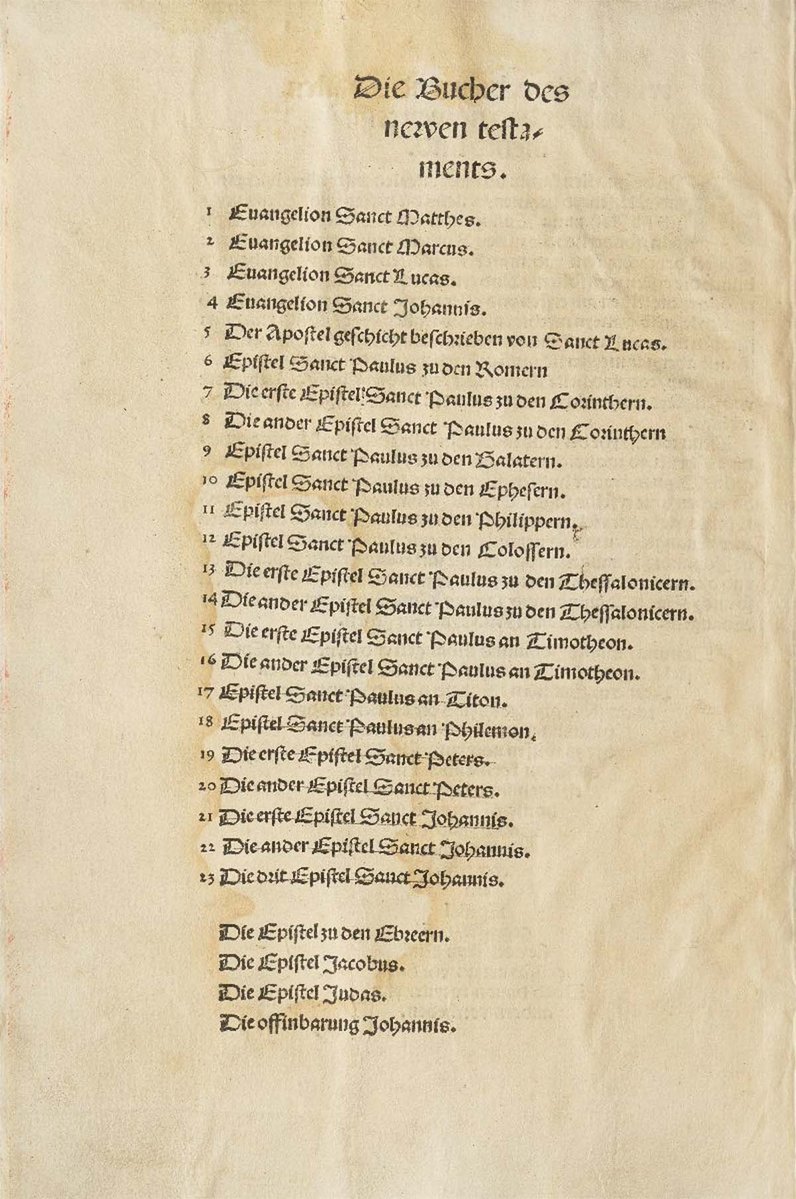 Die Bucher des
newen testa⸗
ments.
1 Euangelion Sanct Matthes.
2 Euangelion Sanct Marcus.
3 Euangelion Sanct Lucas.
4 Euangelion Sanct Johannis.
5 Der Apostel geschicht beschrieben von Sanct Lucas.
6 Epistel Sanct Paulus zu den Romern
7 Die erste Epistel Sanct Paulus zu den Corinthern.
8 Die ander Epistel Sanct Paulus zu den Corinthern
9 Epistel Sanct Paulus zu den Galatern.
10 Epistel Sanct Paulus zu den Ephesern.
11 Epistel Sanct Paulus zu den Philippern.
12 Epistel Sanct Paulus zu den Colossern.
13 Die erste Epistel Sanct Paulus zu den Thessalonicern.
14 Die ander Epistel Sanct Paulus zu den Thessalonicern.
15 Die erste Epistel Sanct Paulus an Timotheon.
16 Die ander Epistel Sanct Paulus an Timotheon.
17 Epistel Sanct Paulus an Titon.
18 Epistel Sanct Paulus an Philemon.
19 Die erste Epistel Sanct Peters.
20 Die ander Epistel Sanct Peters.
21 Die erste Epistel Sanct Johannis.
22 Die ander Epistel Sanct Johannis.
23 Die drit Epistel Sanct Johannis.
Die Epistel zu den Ebreern.
Die Epistel Jacobus.
Die Epistel Judas.
Die offinbarung Johannis.